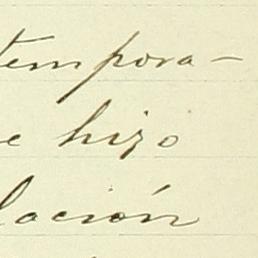 tempora-
e hizo
lación